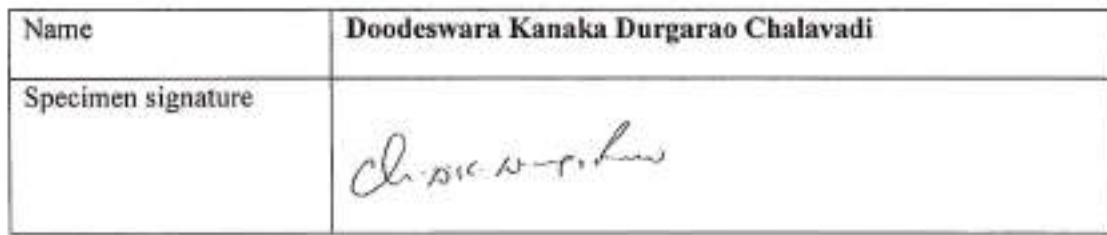 Name Doodeswara Kanaka Durgarao Chalavadi
Specimen signature